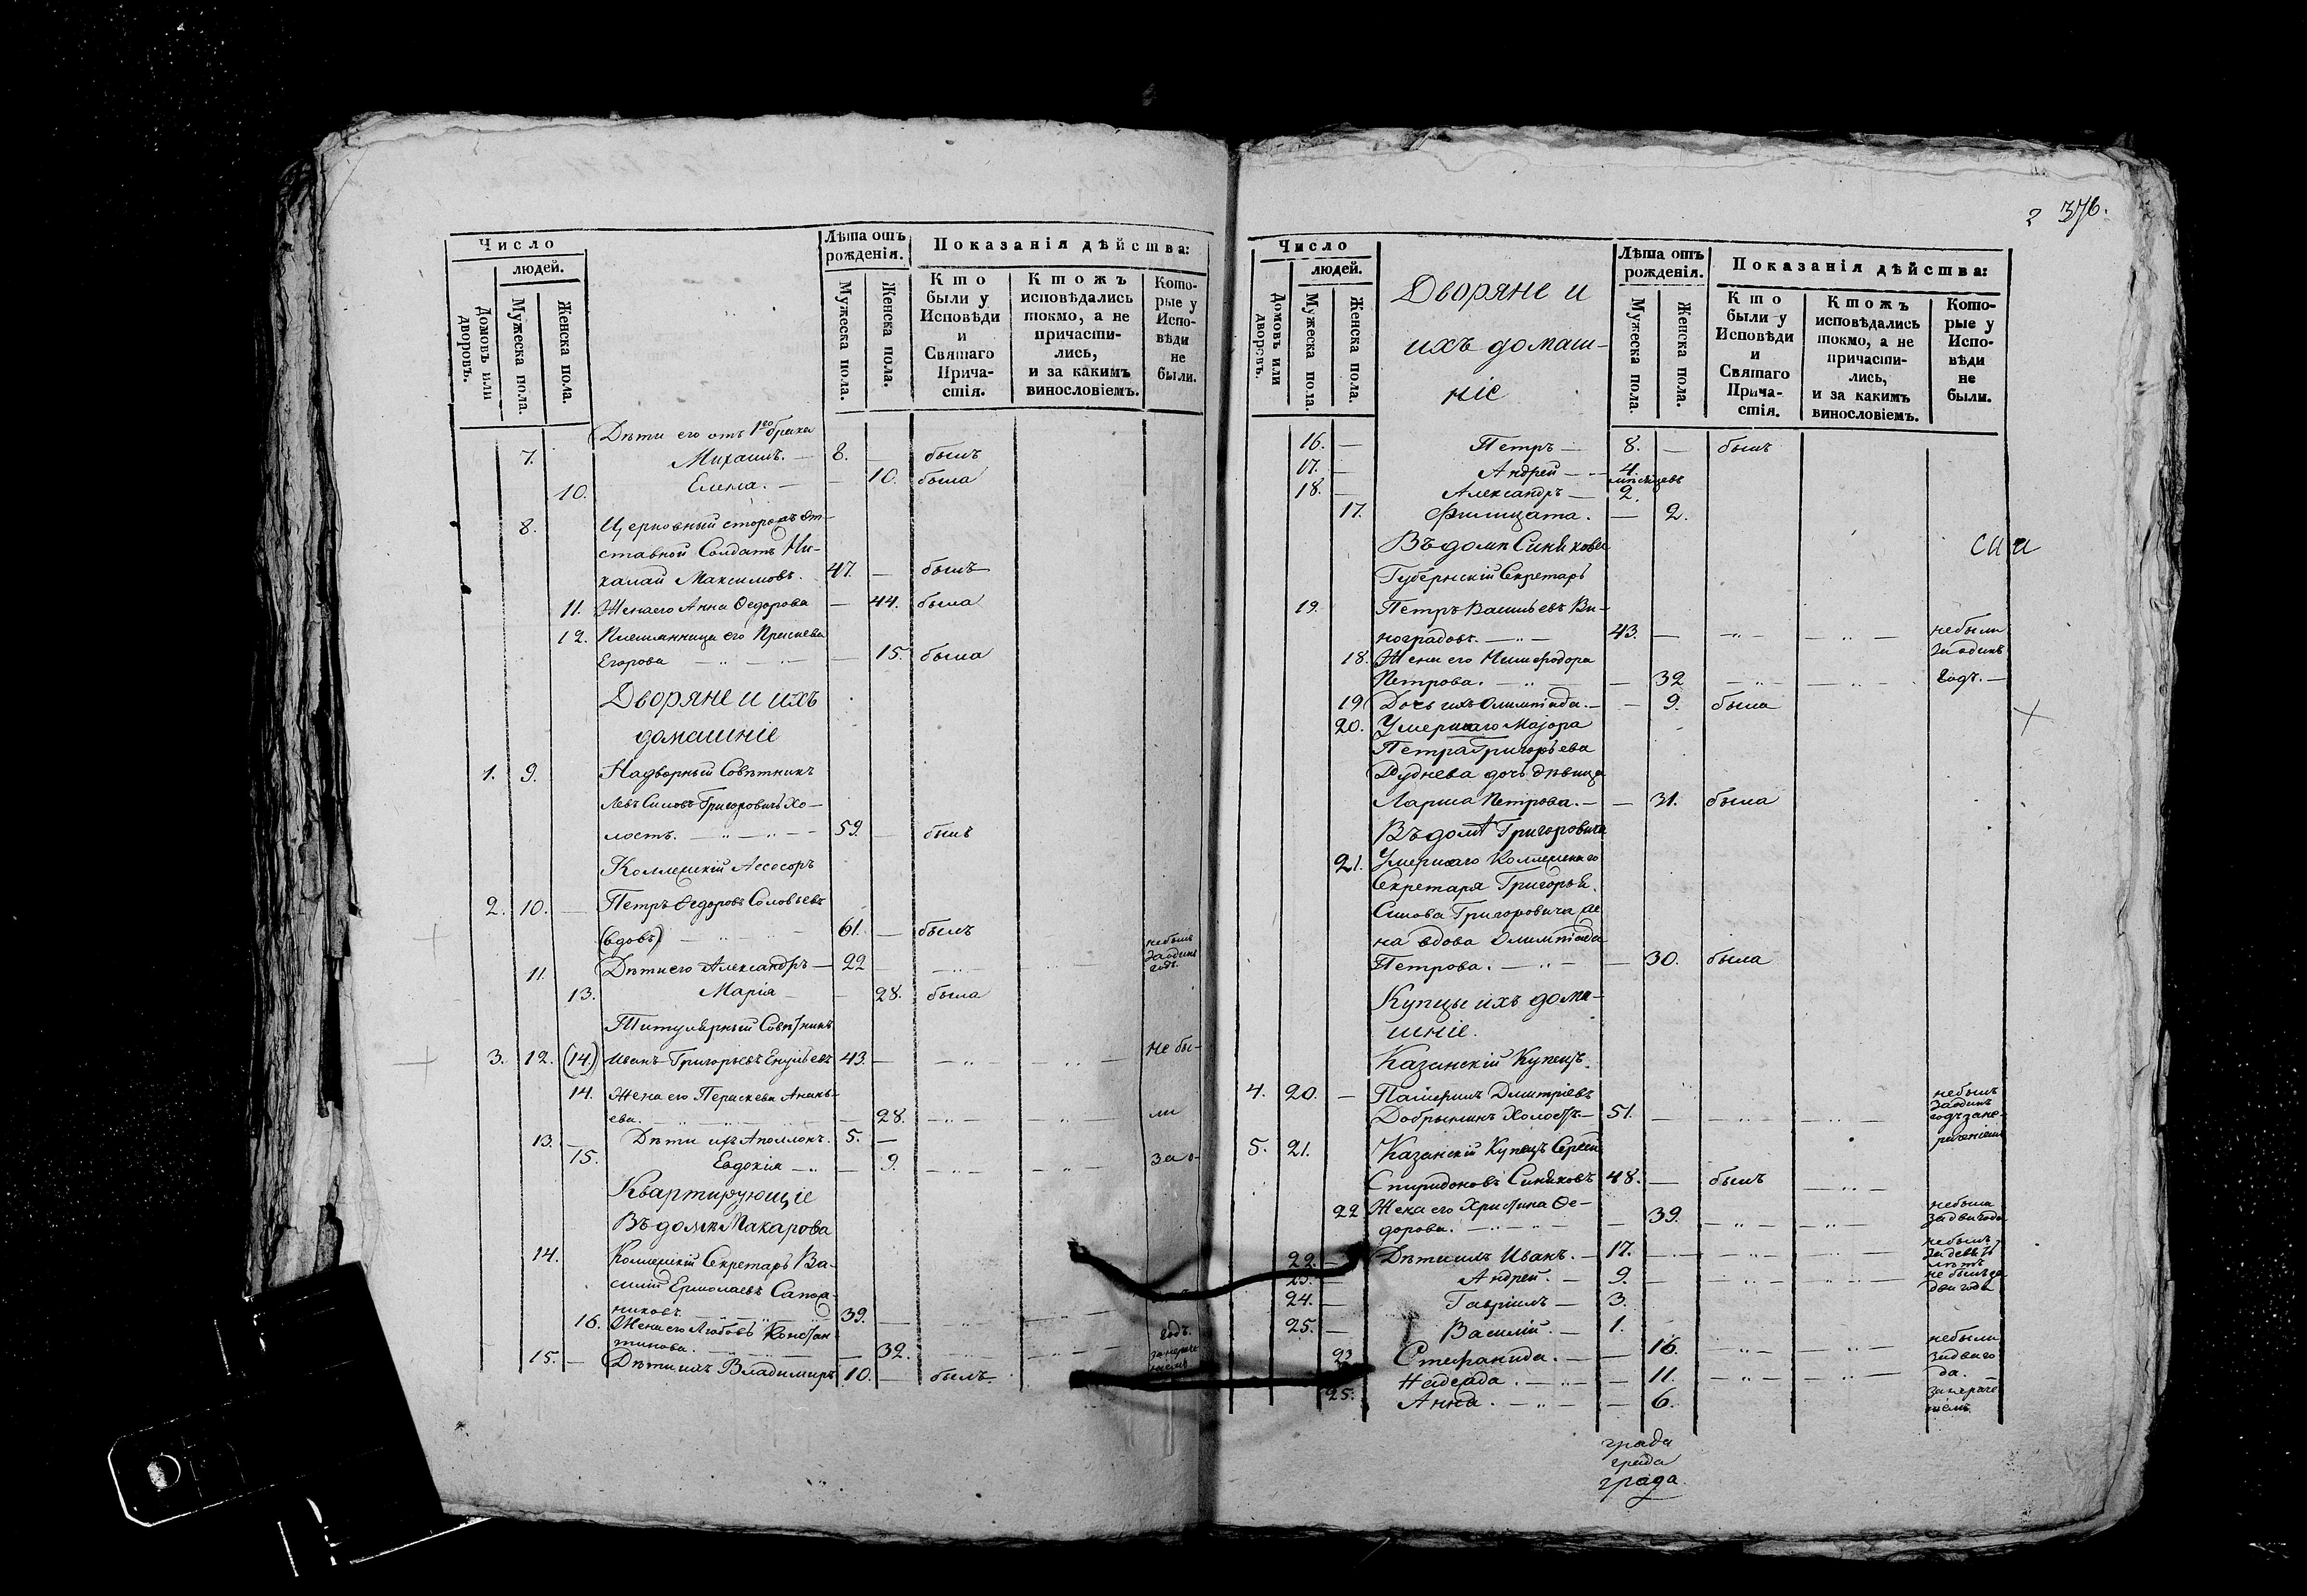 Число
людей.
Домовъ или дворовъ.
Мужеска пола.
Женска пола.
Лѣта отъ рожденія.
Мужеска пола.
Женска пола.
Показанія дѣйства:
Кто были у Исповѣди и Святаго Причастія.
Ктожъ исповѣдались токмо, а не причастились, и за какимъ винословіемъ.
Которые у Исповѣди не были.
Дѣти его отъ 1го брака
7. Михаилъ. — 8. — былъ
10. Елена. — — 10. была
8. Церковный сторожъ От-
ставной Солдатъ Ни-
калай Максимовъ. 47. — былъ
11. Жена его Анна Ѳедорова — 44. была
12. Племянница его Праскева
Егорова — 15. была
Дворяне и ихъ
домашніе
1. 9. Надворный Совѣтникъ
Левъ Силовъ Григоровичъ Хо-
лостъ. 59. — былъ
Коллежскій Ассесоръ
2. 10. — Петръ Ѳедоровъ Соловьевъ
(вдовъ) 61. — былъ
11. Дѣти его Александръ — 22 — небылъ за одинъ годъ.
13. Марія — — 28. была
Титулярный Совѣтникъ
3. 12. (14.) Иванъ Григорьевъ 43. — Не бы-
14. Жена его Параскева Анань-
ева. — 28. ли
13. — Дѣти ихъ Аполлонъ. 5. —
15. Евдокія — 9. за о-
Квартирующіе
Въ домѣ Макарова
14. Коллежскій Секретарь Ва-
силій Ермолаевъ Сапож-
никовъ. 39. —
16. Жена его Любовь Констан-
тинова. — 32. годъ.
15. — Дѣти ихъ Владимиръ 10. — былъ.
2 376.
Число
людей.
Домовъ или дворовъ.
Мужеска пола.
Женска пола.
Дворяне и
ихъ домаш-
ніе
Лѣта отъ рожденія.
Мужеска пола.
Женска пола.
Показанія дѣйства:
Кто были у Исповѣди и Святаго Причастія.
Ктожъ исповѣдались токмо, а не причастились, и за какимъ винословіемъ.
Которые у Исповѣди не были.
16. — Петръ — 8. — былъ
17. — Андрей — 4.
мѣсяцевъ
18. — Александръ — 2.
17. Филицата. — 2.
Въ домѣ Синякова
Губернскій Секретарь
19. Петръ Васильевъ Ви-
ноградовъ. 43. — небыли
18. Жена его Нимфодора за одинъ
Петрова. — 32 годъ. —
19 Дочь ихъ Олимпіада. — — 9. была
20. Умершаго Маіора
Петра Григорьева
Руднева дочь дѣвица
Лариса Петрова. — — 31. была
Въ домѣ Григоровича
21. Умершаго Коллежскаго
Секретаря Григорья
Силова Григоровича же
на вдова Олимпіада
Петрова. — 30. была
Купцы ихъ дома-
шніе.
Казанскій Купецъ.
4. 20. — Дмитріевъ
Добрынинъ Холостъ — 51. — небылъ за одинъ годъ за не-
раченіемъ
5. 21. Казанскій Купецъ Сергей
Спиридоновъ Синяковъ 48. — былъ
22 Жена его Христина Ѳе-
дорова. — 39. небыла за два года
22. — Дѣти ихъ Иванъ. — 17. небылъ за девять лѣтъ
23. — Андрей. — 9. не былъ за два года
24. — Гавріилъ — 3.
25. — Василій. — 1.
23 Стефанида. — — 16. небыли за два го
Надежда. — 11. да. —
25. Анна. — 6. за нераче
ніемъ
града
града
града